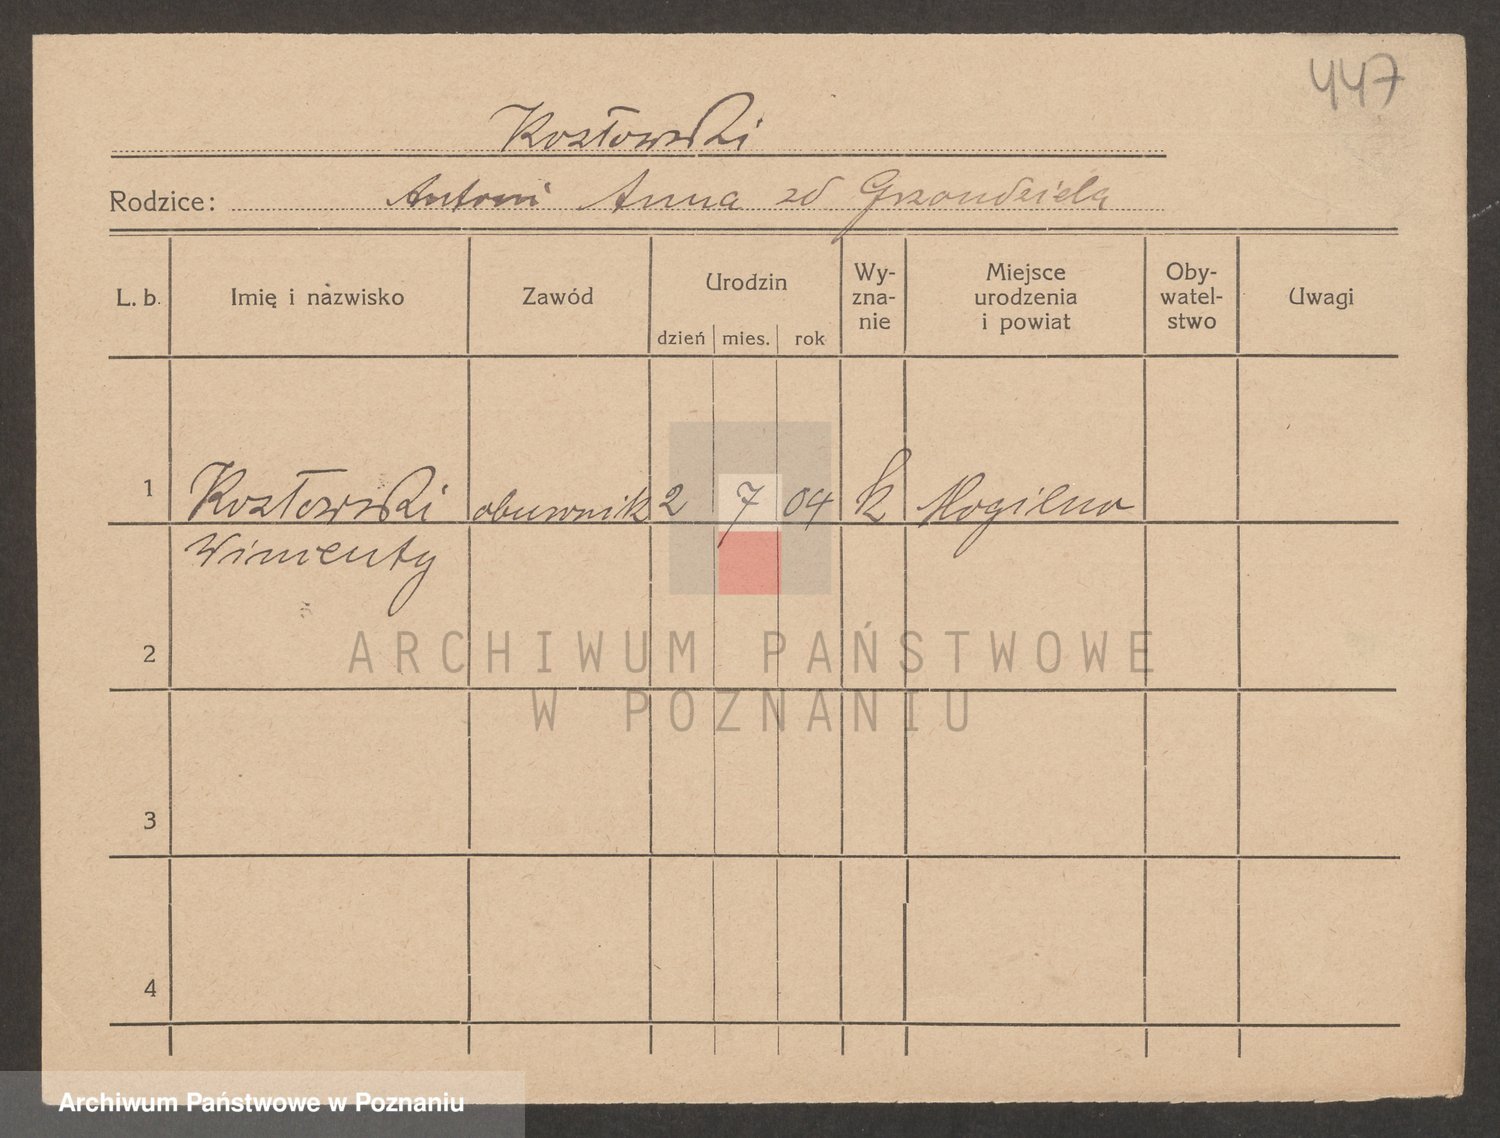 447
Kozłowski
Rodzice: Antoni Anna zd Grzondziela
L. b. Imię i nazwisko Zawód Urodzin dzień mies. rok Wy-zna-nie Miejsce urodzenia i powiat Oby-watel-stwo Uwagi
1 Kozłowski obuwnik 2 7 04 k Mogilno
Wincenty
2
ARCHIWUM PAŃSTWOWE
W POZNANIU
3
4
Archiwum Państwowe w Poznaniu